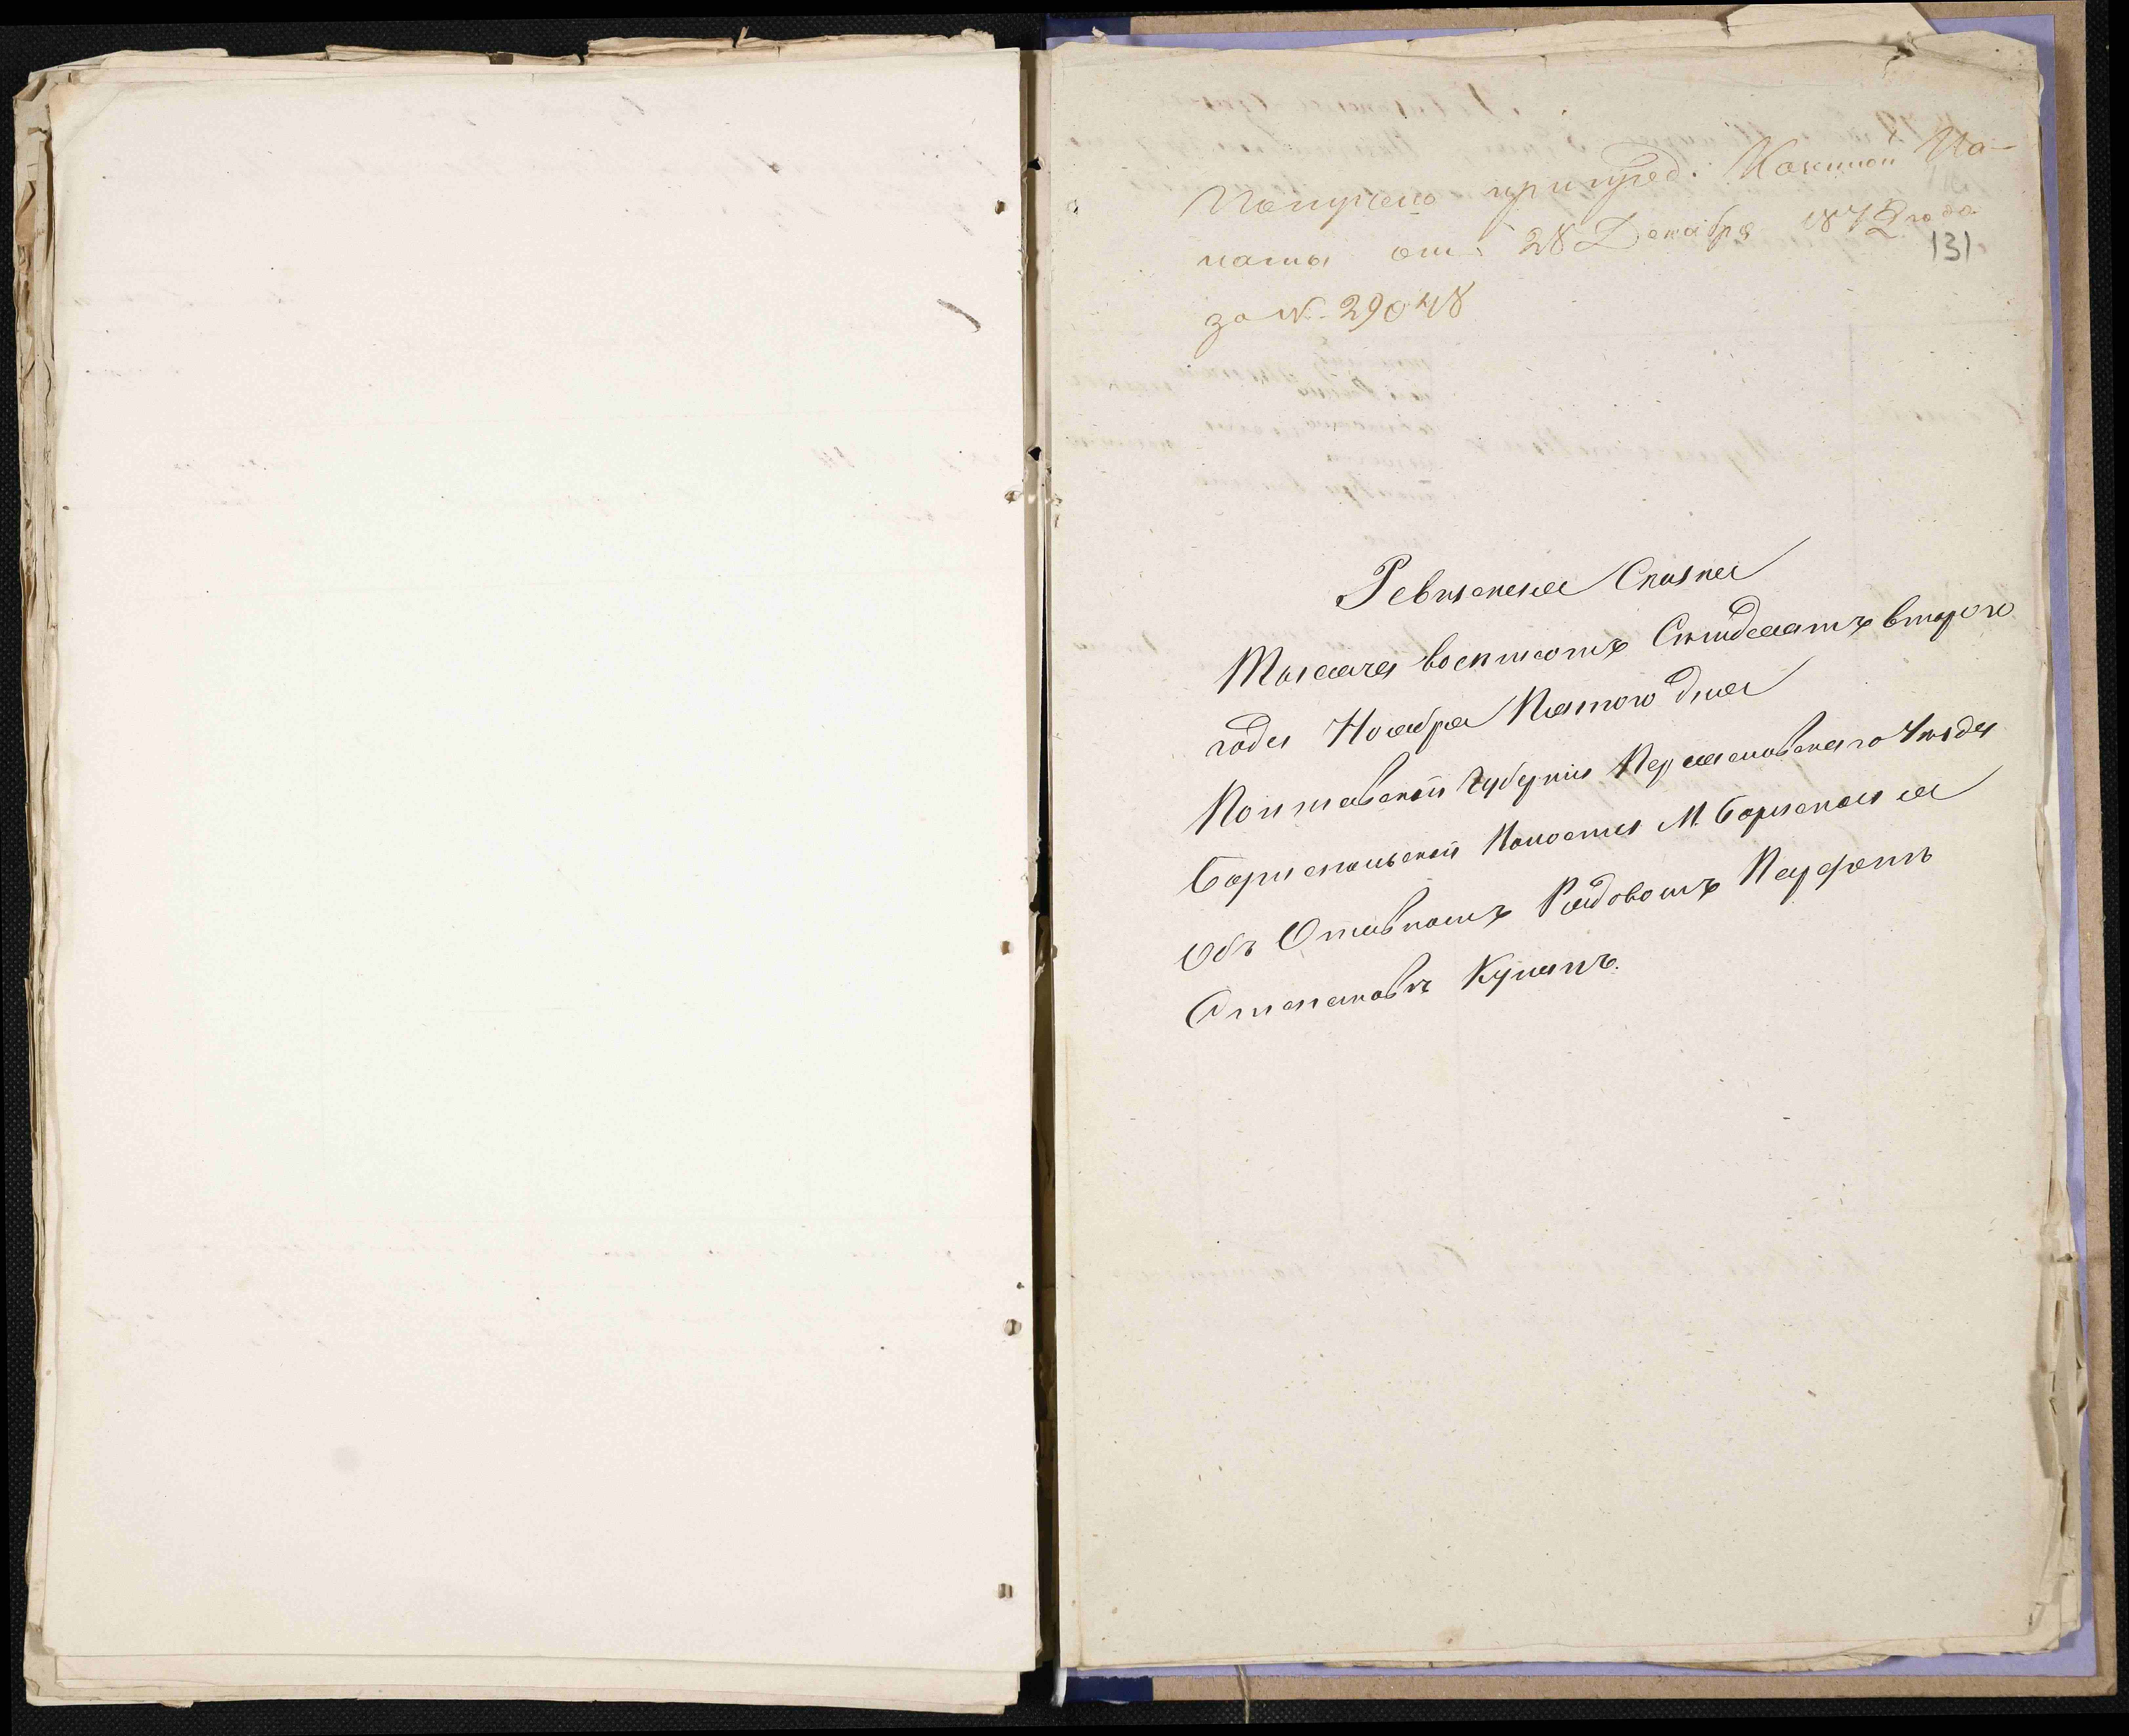 Получено при пред. Казенной Па-
латы отъ 28 Декабря 1872 года
за №. 29048
131
Ревизская Сказка
Тысяча восемсотъ Семдесятъ второго
года Ноября Пятого дня
Полтавской Губерніи Переясловскаго Уѣзда
Бориспольской Волости М. Борисполя
Объ Отставномъ Рядовомъ
Степановѣ